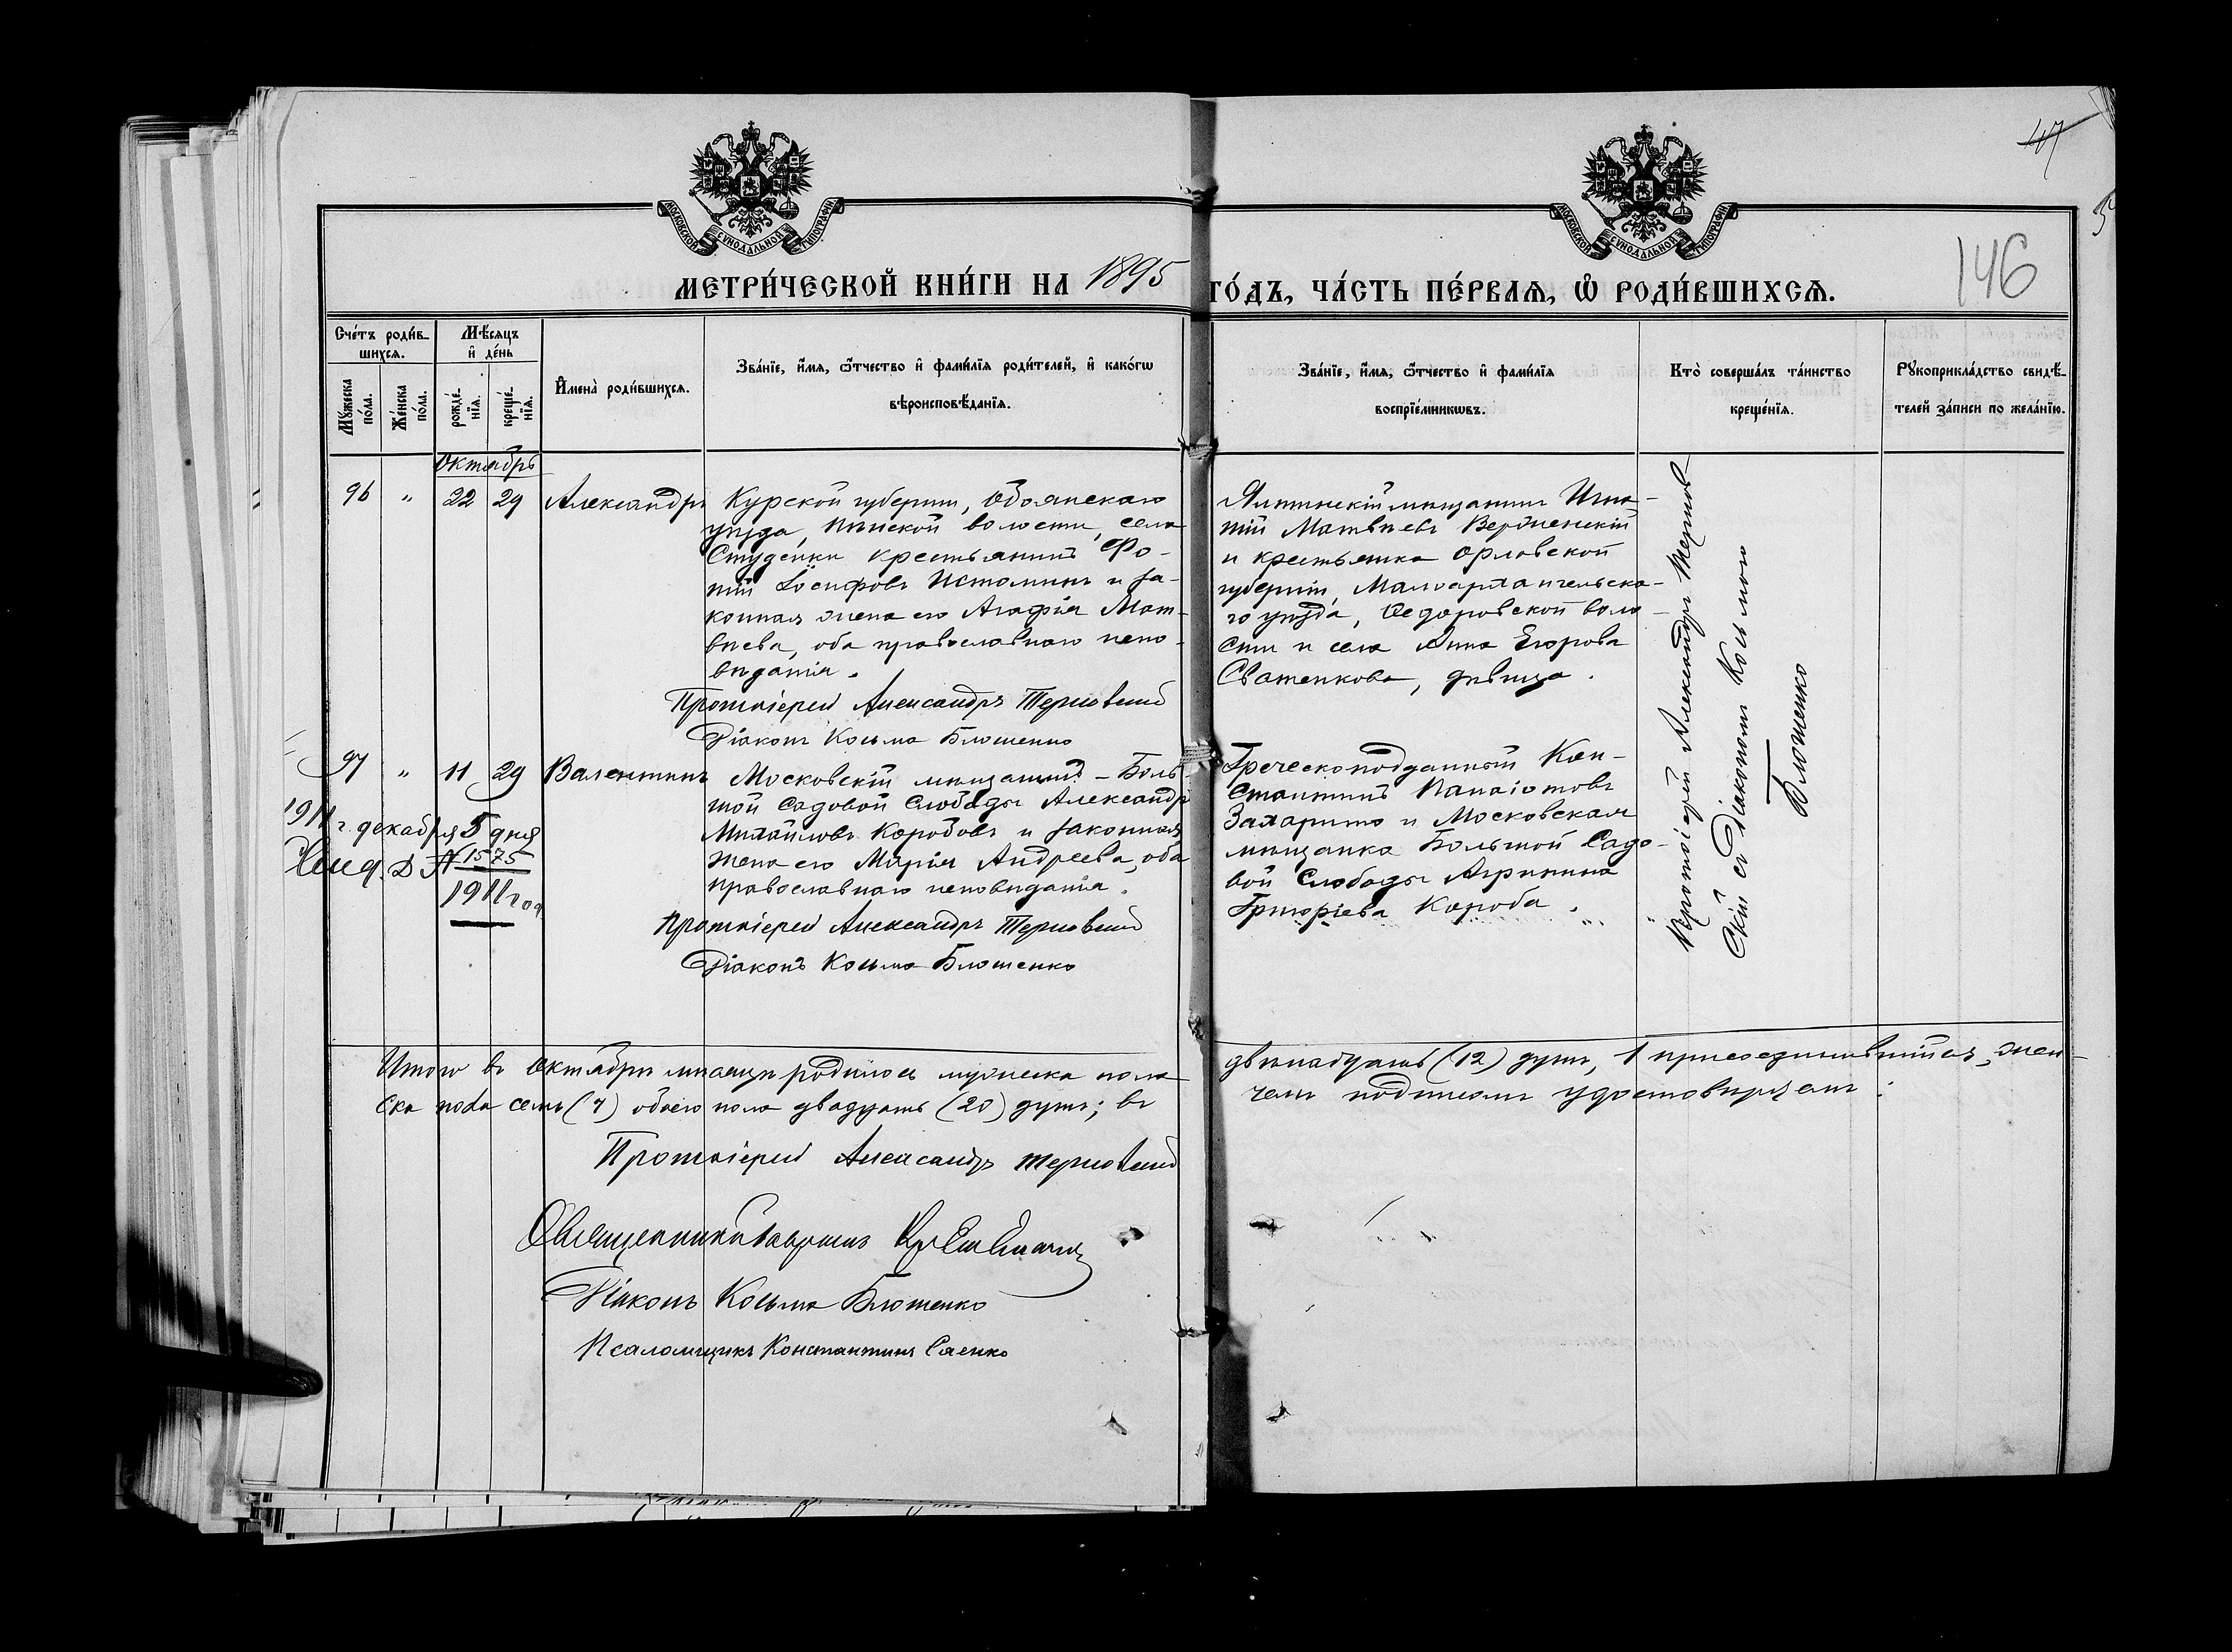 47
146
МОСКОВСКОЙ СѴНОДАЛЬНОЙ ТИПОГРАФІИ
МОСКОВСКОЙ СѴНОДАЛЬНОЙ ТИПОГРАФІИ
МЕТРИ́ЧЕСКОЙ КНИ́ГИ НА 1895 ГО́ДЪ, ЧА́СТЬ ПЕ́РВАѦ, Ѡ҆ РОДИ́ВШИХСѦ.
Счє́тъ роди́в-
шихсѧ.
Мꙋжеска по́ла.
Же́нска по́ла.
Мѣ́сѧцъ
и҆ де́нь
рожде́-
нїѧ.
креще́-
нїѧ.
И҆мена̀ роди́вшихсѧ.
Зва́нїе, и҆́мѧ, ѻ҆́тчество и҆ фами́лїѧ роди́телей, и҆ како́гѡ
вѣроисповѣ́данїѧ.
Зва́нїе, и҆́мѧ, ѻ҆́тчество и҆ фами́лїѧ
воспрїе́мникѡвъ.
Кто̀ соверша́лъ та́инство
креще́нїѧ.
Рꙋкоприкла́дство свидѣ́-
телей за́писи по жела́нїю.
Октябрь
96 " 22 29 Александръ
Курской губерніи, Обоянскаго
уѣзда, Пѣнской волости, села
Студенки крестьянинъ Фо-
тій Іосифовъ Истоминъ и за-
конная жена его Агафія Мат-
вѣева, оба православнаго испо-
вѣданія.
Протоіерей Александръ Терновскій
Діаконъ Косьма Блошенко
Ялтинскій мѣщанинъ Игна-
тій Матвѣевъ Верженскій
и крестьянка Орловской
губерніи, Малоархангельска-
го уѣзда, Ѳедоровской воло-
сти и села Анна Егорова
Сватенкова, дѣвица.
Протоіерей Александръ Тернов-
скій съ Діакономъ Косьмою
Блошенко
97 " 11 29 Валентинъ
Московскій мѣщанинъ – Боль-
шой Садовой Слободы Александръ
Михайловъ Коробовъ и законная
жена его Марія Андреева, оба
православнаго исповѣданія.
Протоіерей Александръ Терновскій
Діаконъ Косьма Блошенко
Греческоподданный Кон-
стантинъ Панаіотовъ
Захарито и Московская
мѣщанка Большой Садо-
вой Слободы Агрипина
Григоріева Короба.
1911 г. декабря 5 дня
№ 1575
1911 год
Итого въ Октябрѣ мѣсяцѣ родилось мужеска пола двѣнадцать (12) душъ, 1 присоединившійся, жен-
ска пола семь (7) обоего пола двадцать (20) душъ; въ чемъ подписомъ удостовѣряемъ:
Протоіерей Александръ Терновскій
Священникъ
Діаконъ Косьма Блошенко
Псаломщикъ Константинъ Саенко